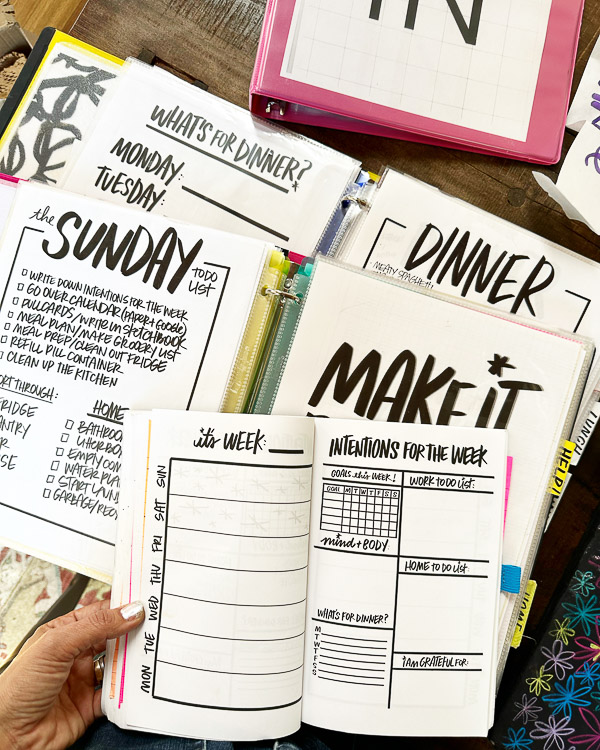 IN
WHAT'S FOR DINNER?
MONDAY:
TUESDAY:
the SUNDAY TO DO LIST
WRITE DOWN INTENTIONS FOR THE WEEK
GO OVER CALENDAR (PAPER + GOOGLE)
PULL CARDS/WRITE IN SKETCHBOOK
MEAL PLAN/MAKE GROCERY LIST
MEAL PREP/CLEAN OUT FRIDGE
REFILL PILL CONTAINER
CLEAN UP THE KITCHEN
ORT THROUGH:
FRIDGE
ANTRY
HOME
BATHROO
LITTER BO
EMPTY COM
WATER PLA
START LAUN
GARBAGE/REC
DINNER
MEATY SPAGHETTI
MAKE IT
LUNCH
HELP!
HOME
it's WEEK:
SUN
SAT
FRI
THU
WED
TUE
MON
INTENTIONS FOR THE WEEK
GOALS this WEEK!
GOAL M T W T F S S
mind + BODY:
WHAT'S FOR DINNER?
M
T
W
T
F
S
S
WORK TO DO LIST:
HOME TO DO LIST:
I AM GRATEFUL FOR: